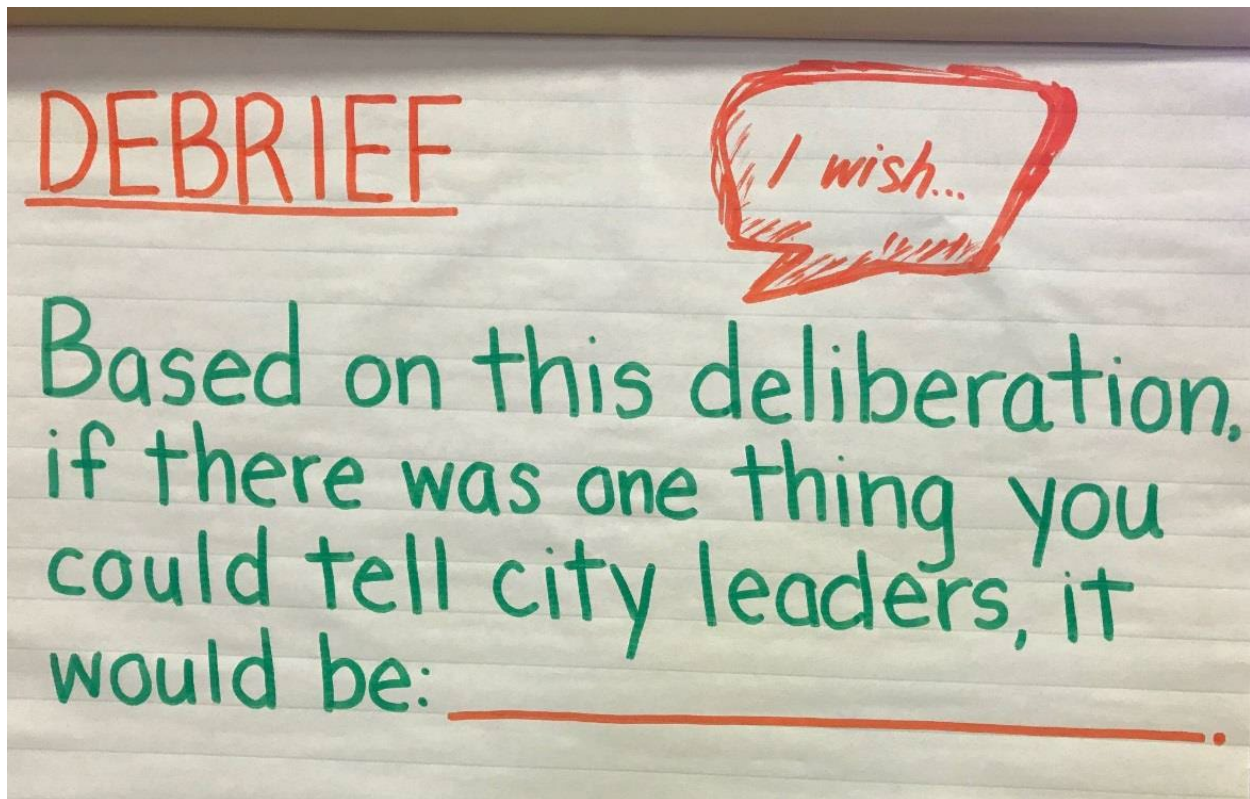 DEBRIEF
I wish...
Based on this deliberation,
if there was one thing you
could tell city leaders, it
would be: ____________.